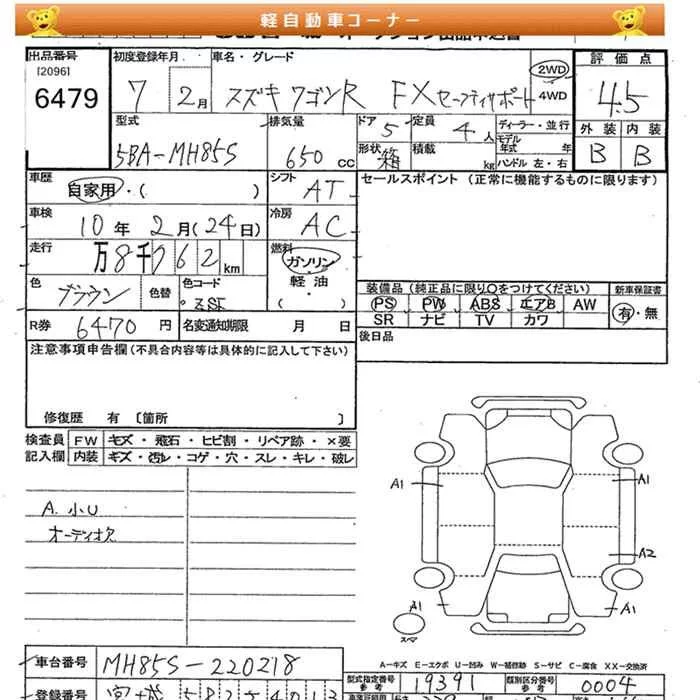 軽自動車コーナー
出品番号
[2096]
6479
初度登録年月
7 2月
車名・グレード
スズキ ワゴンR FXセーフティサポート
2WD
4WD
評価点
4.5
外装 内装
B B
型式
5BA-MH85S
排気量
650 cc
ドア 5
形状 箱
定員 4人
積載 kg
ディーラー・並行
モデル年式 年
ハンドル 左・右
車歴
自家用・( )
シフト AT
セールスポイント (正常に機能するものに限ります)
車検
10年 2月(24日)
冷房 AC
走行
万8千762km
燃料
ガソリン
軽油
( )
色
ブラウン
色替
色コード
ZSF
装備品(純正品に限り○をつけてください)
新車保証書
PS PW ABS エアB AW
SR ナビ TV カワ
有・無
R券 6470円
名変通知期限 月 日
後日品
注意事項申告欄(不具合内容等は具体的に記入して下さい)
修復歴 有 〔箇所 〕
検査員記入欄
FW キズ・飛石・ヒビ割・リペア跡・×要
内装 キズ・汚レ・コゲ・穴・スレ・キレ・破レ
A.小U
オーディオ欠
A1
A1
A2
A1
A1
スペア
A-キズ E-エクボ U-凹み W-補修跡 S-サビ C-腐食 XX-交換済
車台番号
MH85S-220218
型式指定番号
参考
19391
類別区分番号
参考
0004
登録番号
宮城 582